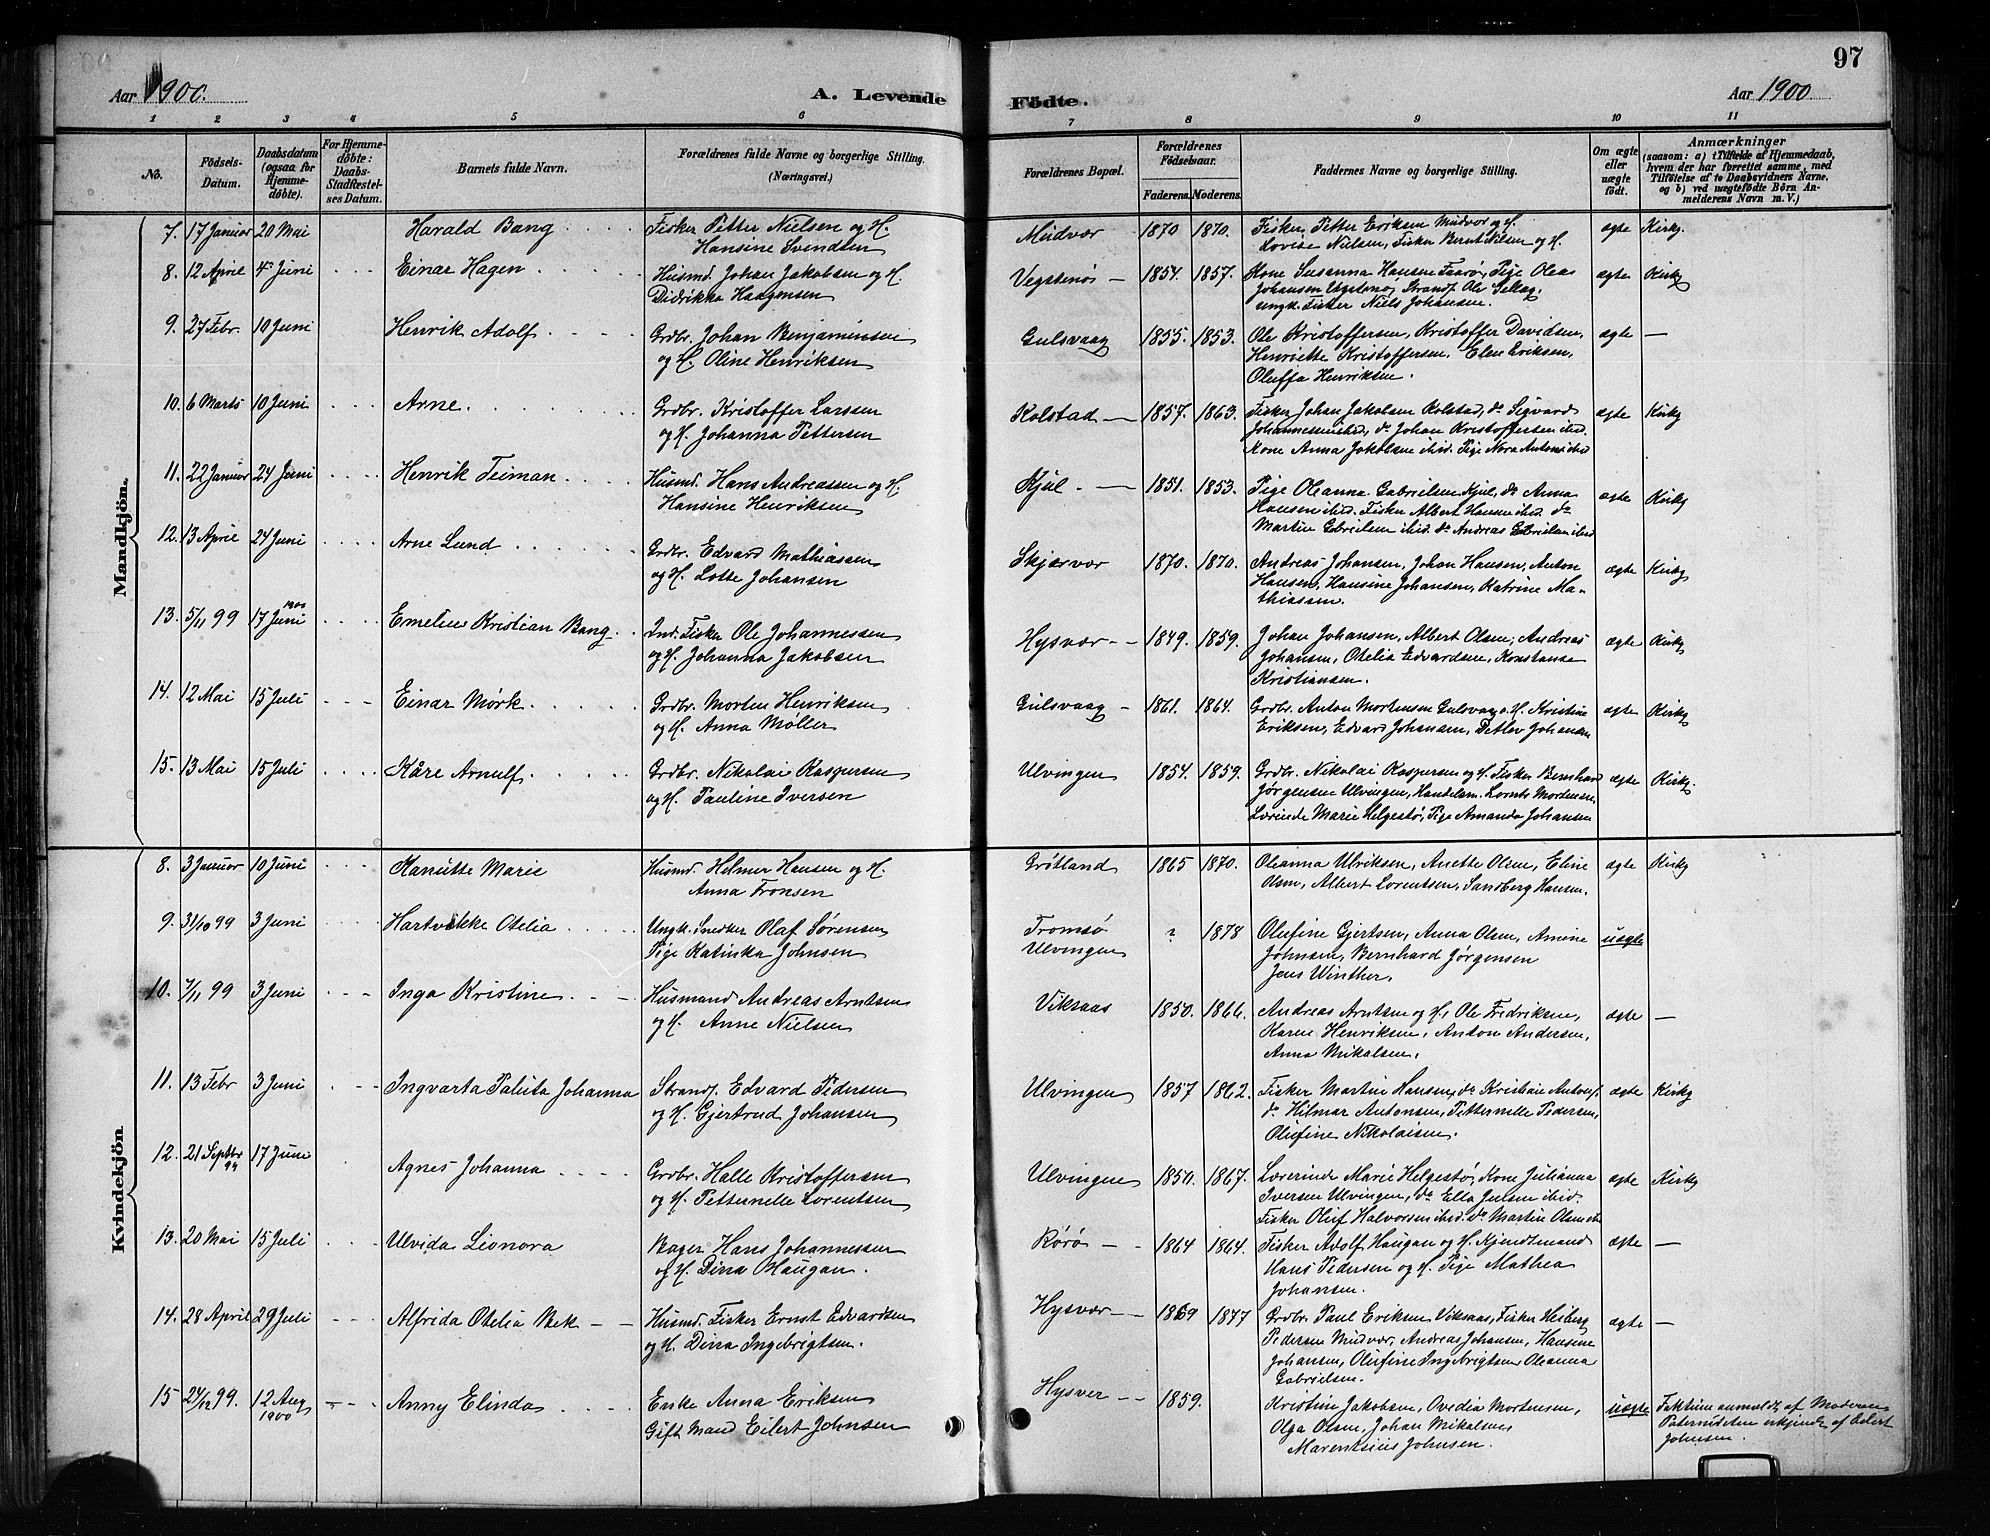 97
Aar 1900.
A. Levende Födte.
Aar 1900
1 2 3 4 5 6 7 8 9 10 11
No.
Födsels-Datum.
Daabsdatum (ogsaa for Hjemmedöbte).
For Hjemmedöbte: Daabs-Stadfæstelses Datum.
Barnets fulde Navn.
Forældrenes fulde Navne og borgerlige Stilling.
(Næringsvei.)
Forældrenes Bopæl.
Forældrenes Födselsaar.
Faderens. Moderens.
Faddernes Navne og borgerlige Stilling.
Om ægte eller uægte födt.
Anmærkninger
(saasom: a) i Tilfælde af Hjemmedaab, hvem der har forrettet samme, med Tilföielse af to Daabsvidners Navne, og b) ved uægtefödte Börn Anmelderens Navn m. V.)
Mandkjön.
7. 17 Januar 20 Mai Harald Bang Fisker Petter Nielsen og H. Mudvær 1870 1870. Fisker Petter Eriksen Mudvær og H. ægte Kirkg.
Hansine Svendsen Lovise Nielsen, Fisker Bernt Nilsen og H.
8. 12 April 4 Juni Einar Hagen Husmd. Johan Jakobsen og H. Vegstenøs 1854. 1857. Kone Susanna Hansen Faarø, Pige Olea ægte Kirkg
Didrikke Haagensen Johansen Vegstenø, Strands. Ole
ungk. Fisker Niels Johansen.
9. 27 Febr. 10 Juni Henrik Adolf Grdbr. Johan Benjaminsen Gulsvaag 1855. 1853. Ole Kristoffersen, Kristoffer Davidsen, ægte —
og H. Oline Henriksen Henriette Kristoffersen, Elen Eriksen,
Oluffa Henriksen.
10. 6 Marts 10 Juni Arne Grdbr. Kristoffer Larssen Kolstad 1857. 1863. Fisker Johan Jakobsen Kolstad, do Sigvard ægte Kirkg
og H. Johanna Pettersen Johannessen ibid, do Johan Kristoffersen ibid.
Kone Anna Jakobsen ibid. Pige Nora Antoni ibid
11. 22 Januar 24 Juni Henrik Teiman Husmd. Hans Andreassen og H. Kjul 1851. 1853. Pige Oleanna Gabrielsen Kjul, do Anna ægte Kirkg
Hansine Henriksen Hansen ibid. Fisker Albert Hansen ibid do
Martin Gabrielsen ibid. do Andreas Gabrielsen ibid
12. 13 April 24 Juni Arne Lund Grdbr. Edvard Mathiassen Skjærvær 1870. 1870. Andreas Johansen, Johan Hansen, Anton ægte Kirkg
og H. Lotte Johansen Hansen, Hansine Johansen, Katrine Ma-
thiassen.
13. 5/11 99 17 Juni 1900 Emelius Kristian Bang Ind. Fisker Ole Johannessen Hysvær 1849. 1859. Johan Johansen, Albert Olsen, Andreas ægte Kirkg
og H. Johanna Jakobsen Johansen, Otelia Edvardsen, Konstanse
Kristiansen.
14. 12 Mai 15 Juli Einar Mørk Grdbr. Morten Henriksen Gulsvaag 1861. 1864. Grdbr. Anton Mortensen Gulsvaag o. H. Kristine ægte Kirkg
og H. Anna Møller Eriksen, Edvard Johansen, Detlev Johansen
15. 13 Mai 15 Juli Kåre Arnulf Grdbr. Nikolai Kaspersen Ulvingen 1854. 1859. Grdbr. Nikolai Kaspersen og H. Fisker Bernhard ægte Kirkg.
og H. Pauline Iversen Jørgensen Ulvingen, Handelsm. Lornts Mortensen,
Lærinde Marie Helgestø, Pige Amanda Johansen
Kvindekjön
8. 3 Januar 10 Juni Hanütte Marie Husmd. Helmer Hansen og H. Grøtland 1865 1870. Oleanna Ulriksen, Anette Olsen, Eline ægte Kirkg
Anna Fronsen Olsen, Albert Lorentsen, Sandberg Hansen.
9. 31/10 99 3 Juni Hartvikke Otelia Ungk. Snedker Olaf Sørensen Tromsø ? 1878 Olufine Gjertsen, Anna Olsen, Amine uægte
Pige Katinka Johnsen Ulvingen Johnsen, Bernhard Jørgensen
Jens Winther.
10. 7/11 99 3 Juni Inga Kristine Husmand Andreas Arntsen Viksaas 1850. 1866. Andreas Arntsen og H, Ole Fredriksen, ægte —
og H. Anne Nielsen Karen Henriksen, Anton Andersen,
Anna Mikalsen.
11. 13 Febr 3 Juni Ingvarta Paluta Johanna Strands. Edvard Pedersen Ulvingen 1857 1862. Fisker Martin Hansen, do Kristian Antons, ægte Kirkg
og H. Gjertrud Johansen do Hilmar Antonsen, Petternelle Pedersen,
Olufine Nikolaisen.
12. 21 Septbr 99 17 Juni Agnes Johanna Grdbr. Halle Kristoffersen Ulvingen 1850. 1867. Lærerinde Marie Helgestø, Kone Julianna ægte Kirkg
og H. Petternelle Lorentsen Iversen Ulvingen, do Ella Jensen ibid.
Fisker Oluf Halvorsen ibid. do Martin Olsen ibd
13. 20 Mai 15 Juli Ulvida Lionora Bager Hans Johannessen Rørø 1864 1864. Fisker Adolf Haugan og H. Kjendtmand ægte —
og H. Dina Haugan. Hans Pedersen og H. Pige Mathea
Johansen.
14. 28 April 29 Juli Alfrida Otelia Bek Husmd. Fisker Ernst Edvardsen Hysvær 1869 1877 Grdbr. Paul Eriksen Viksaas, Fisker Heiberg ægte —
og H. Dina Ingebrigtsen. Pedersen Mudvær, Andreas Johansen, Hansine
Johansen, Olufine Ingebrigtsen, Oleanna
Gabrielsen.
15 24/12 99. 12 Aug 1900 Anny Elinda Enke Anna Eriksen Hysver 1859. Kristine Jakobsen, Ovedia Mortensen, uægte Faktum anmeldt af Moderen
Gift Mand Eilert Johnsen Olga Olsen, Johan Mikalsen Paterniteten erkjendt af Eilert
Marentsius Johnsen. Johnsen.